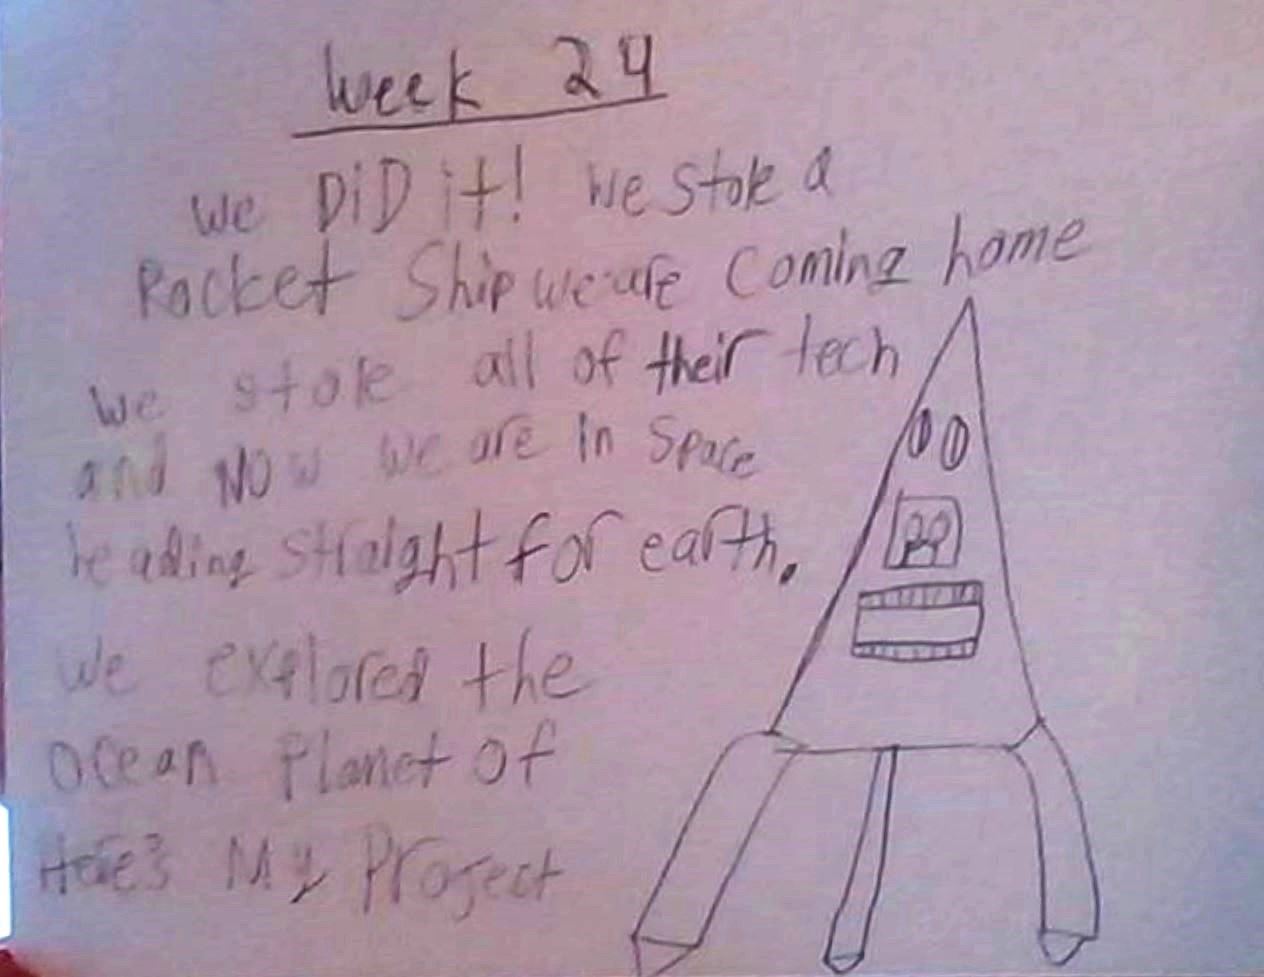 Week 24
We DiD it! We stole a
Rocket Ship we are Coming home
We stole all of their tech
and NOW we are in Space
heading straight for earth.
We explored the
Ocean Planet of
Here's My Project